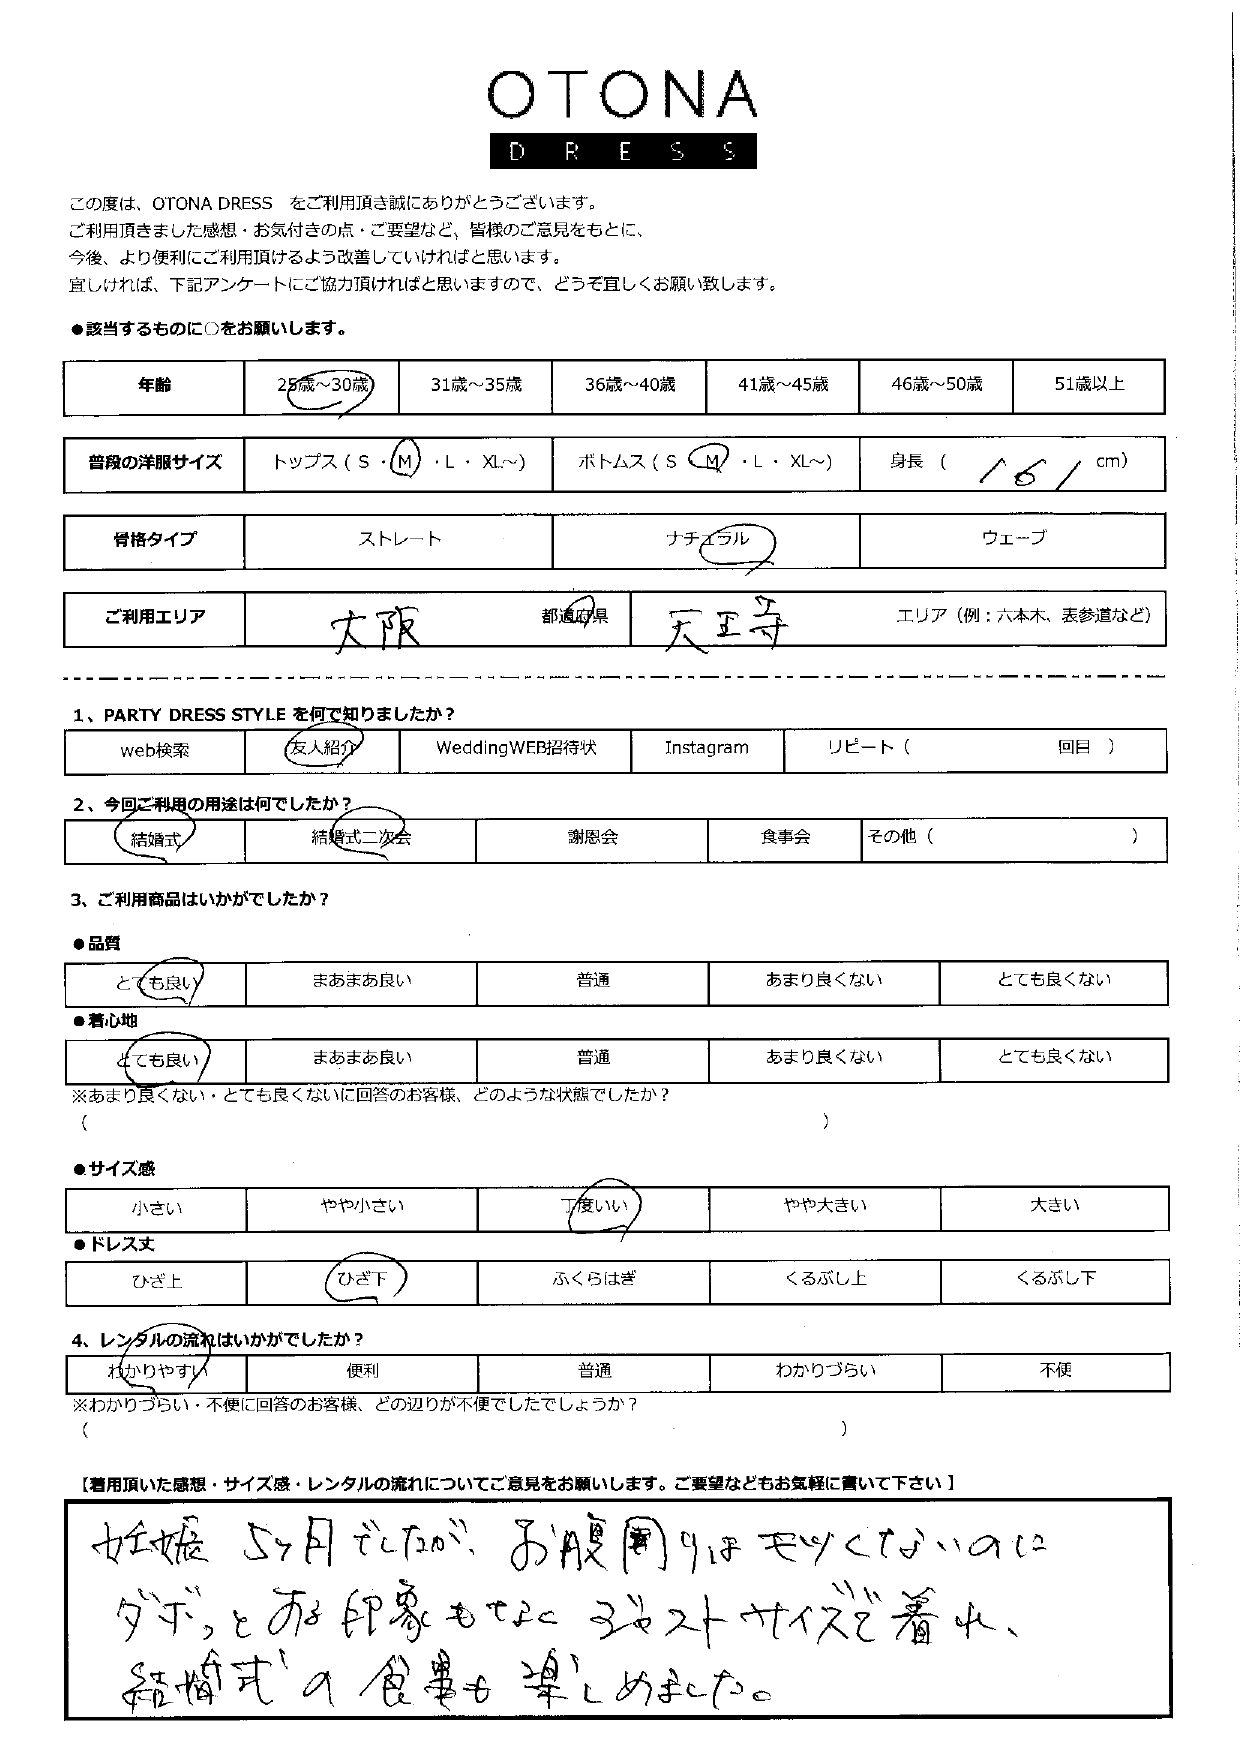 OTONA
DRESS
この度は、OTONA DRESS　をご利用頂き誠にありがとうございます。
ご利用頂きました感想・お気付きの点・ご要望など、皆様のご意見をもとに、
今後、より便利にご利用頂けるよう改善していければと思います。
宜しければ、下記アンケートにご協力頂ければと思いますので、どうぞ宜しくお願い致します。
●該当するものに○をお願いします。
年齢 25歳～30歳 31歳～35歳 36歳～40歳 41歳～45歳 46歳～50歳 51歳以上
普段の洋服サイズ トップス（ S ・M ・L ・ XL～） ボトムス（ S M ・L ・ XL～） 身長 （ 161 cm）
骨格タイプ ストレート ナチュラル ウェーブ
ご利用エリア 大阪 都道府県 天王寺 エリア（例：六本木、表参道など）
1、PARTY DRESS STYLE を何で知りましたか？
web検索 友人紹介 WeddingWEB招待状 Instagram リピート（ 回目 ）
2、今回ご利用の用途は何でしたか？
結婚式 結婚式二次会 謝恩会 食事会 その他（ ）
3、ご利用商品はいかがでしたか？
●品質
とても良い まあまあ良い 普通 あまり良くない とても良くない
●着心地
とても良い まあまあ良い 普通 あまり良くない とても良くない
※あまり良くない・とても良くないに回答のお客様、どのような状態でしたか？
（ ）
●サイズ感
小さい やや小さい 丁度いい やや大きい 大きい
●ドレス丈
ひざ上 ひざ下 ふくらはぎ くるぶし上 くるぶし下
4、レンタルの流れはいかがでしたか？
わかりやすい 便利 普通 わかりづらい 不便
※わかりづらい・不便に回答のお客様、どの辺りが不便でしたでしょうか？
（ ）
【着用頂いた感想・サイズ感・レンタルの流れについてご意見をお願いします。ご要望などもお気軽に書いて下さい 】
妊娠 5ヶ月でしたが、お腹周りはモツくないのに
ダボっとある印象もなく ジャストサイズで着れ、
結婚式の食事も楽しめました。